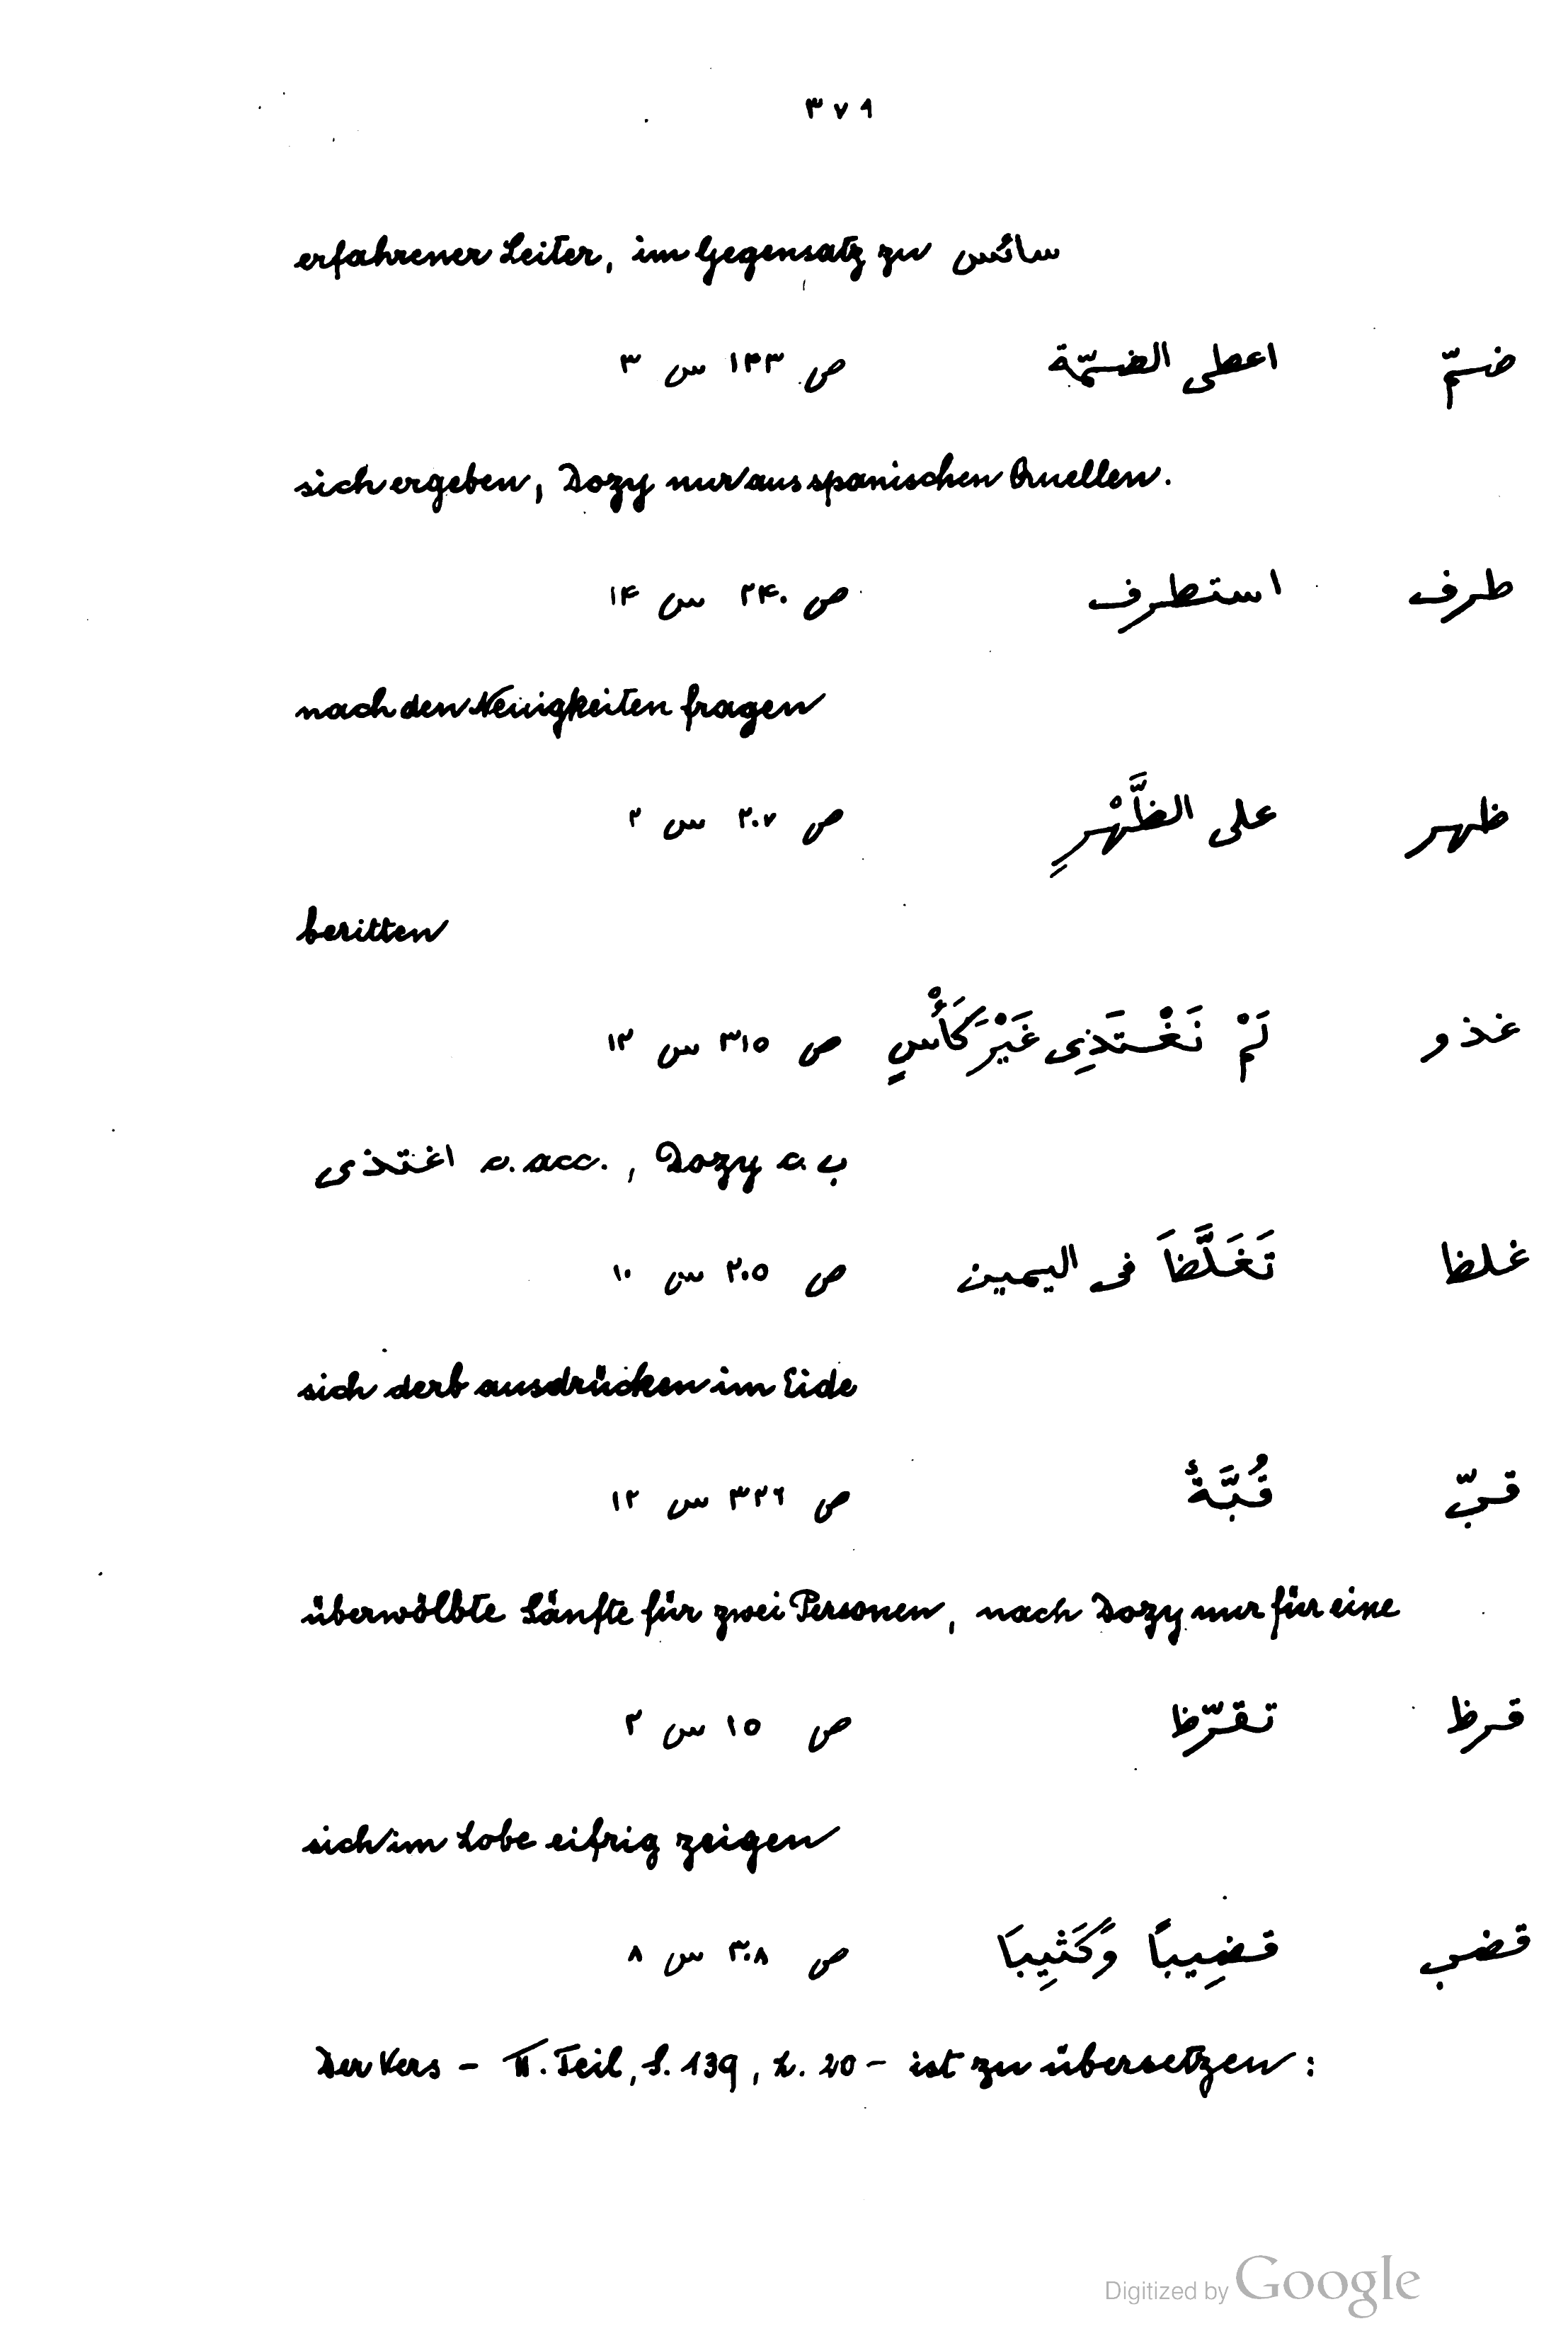 ٣٧١
erfahrener Leiter, im Gegensatz zu سائس
ضمّ اعطى الضمّة ص ١٣٣ س ٣
sich ergeben, Dozy nur aus spanischen Quellen.
طرف استطرف ص ٢٤٠ س ١٤
nach den Neuigkeiten fragen
ظهر على الظَّهْرِ ص ٢٠٧ س ٢
beritten
غذو لَمْ نَغْتَذِى غَيْرَ كَأْسٍ ص ٣١٥ س ١٢
اغتذى c. acc., Dozy c. ب
غلظ تَغَلَّظَ فى اليمين ص ٢٠٥ س ١٠
sich derb ausdrücken im Eide
قبّ قُبَّةٌ ص ٣٢٦ س ١٢
überwölbte Sänfte für zwei Personen, nach Dozy nur für eine
قرظ تقرّظ ص ١٥ س ٢
sich im Lobe eifrig zeigen
قضب قضِيباً وَكَثِيبَا ص ٣٠٨ س ٨
Der Vers – II. Teil, S. 139, L. 20 – ist zu übersetzen:
Digitized by Google